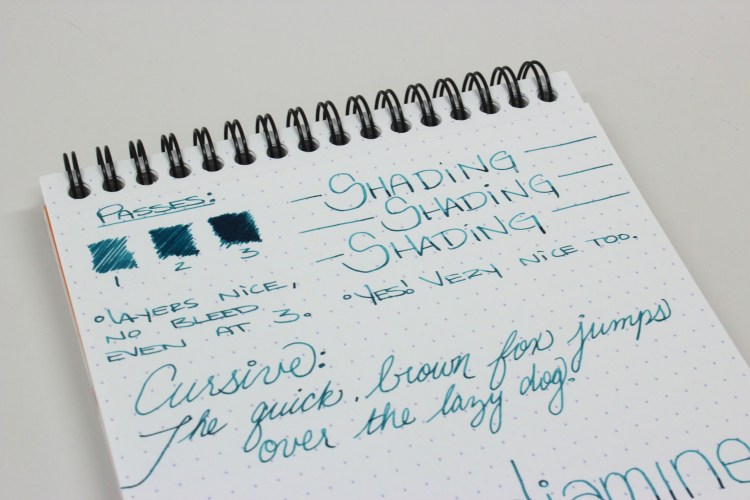 PASSES:
1 2 3
• LAYERS NICE,
NO BLEED
EVEN AT 3.
SHADING
SHADING
SHADING
• YES! VERY NICE TOO.
Cursive:
The quick brown fox jumps
over the lazy dog.
liamine